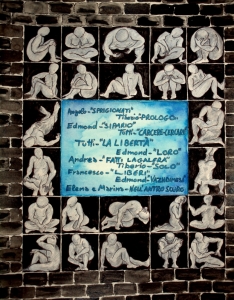 Angelo-"SPRIGIONATI"
Tiberio PROLOGO
Edmond-"SIPARIO"
Tutti-"CARCERE-CERCARE"
Tutti-"LA LIBERTÀ"
Edmond-"LORO"
Andrea-"FATTI LA GALERA"
Tiberio-"SOLO"
Francesco-"LIBERI"
Edmond-
Elena e Marina-NELL'ANTRO SCURO